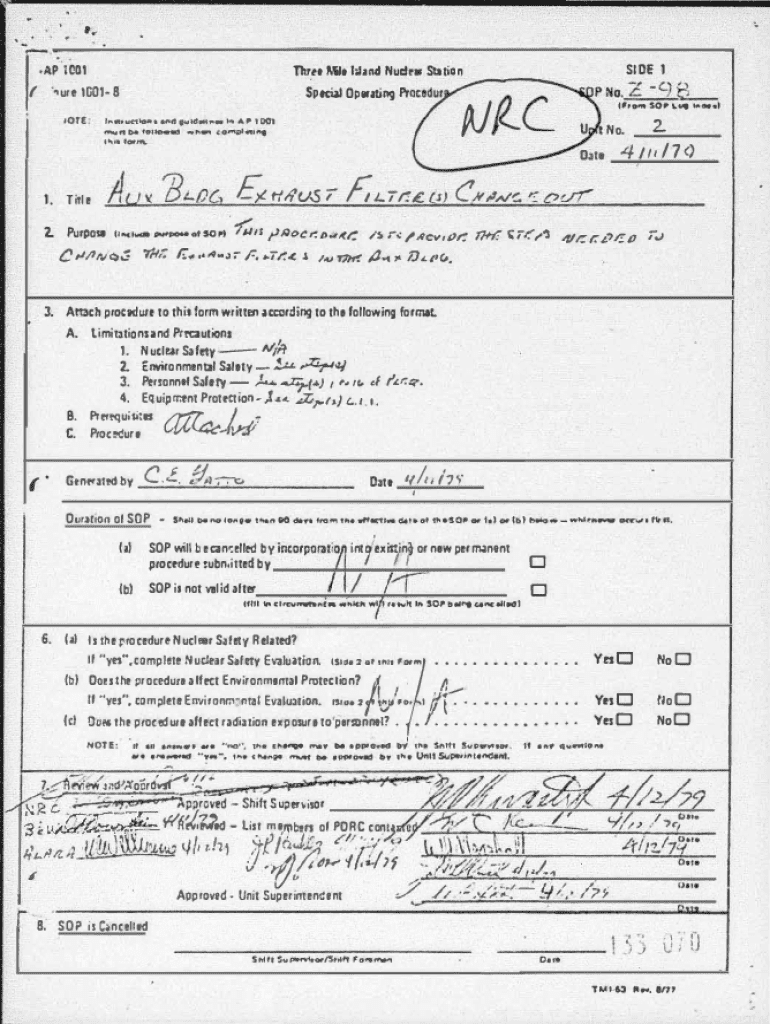 AP 1001
Three Mile Island Nuclear Station
SIDE 1
1001-8
Special Operating Procedure
SOP No. Z-98
(From SOP Log Index)
NOTE: Instructions and guidelines in AP 1001
must be followed when completing
this form.
NRC
Unit No. 2
Date 4/11/79
1. Title AUX BLDG EXHAUST FILTER(S) CHANGEOUT
2. Purpose (Include purpose of SOP) THIS PROCEDURE IS TO PROVIDE THE STEPS NEEDED TO
CHANGE THE EXHAUST FILTERS IN THE AUX BLDG.
3. Attach procedure to this form written according to the following format.
A. Limitations and Precautions
1. Nuclear Safety — N/A
2. Environmental Safety — See step(s)
3. Personnel Safety — See step(s)
4. Equipment Protection - See step(s)
B. Prerequisites
Attached
C. Procedure
Generated by C.E. Date 4/11/79
Duration of SOP - Shall be no longer than 90 days from the effective date of the SOP or (a) or (b) below - whichever occurs first.
(a) SOP will be cancelled by incorporation into existing or new permanent
procedure submitted by
N/A
(b) SOP is not valid after
(fill in circumstances which will result in SOP being cancelled)
6. (a) Is the procedure Nuclear Safety Related?
If "yes", complete Nuclear Safety Evaluation. (Side 2 of this Form) Yes No
(b) Does the procedure affect Environmental Protection?
If "yes", complete Environmental Evaluation. (Side 2 of this Form) Yes No
N/A
(c) Does the procedure affect radiation exposure to personnel? Yes No
NOTE: If all answers are "no", the change may be approved by the Shift Supervisor. If any questions
are answered "yes", the change must be approved by the Unit Superintendent.
7. Review and Approval
NRC
Approved - Shift Supervisor 4/12/79
Date
Reviewed - List members of PORC contacted 4/12/79
Date
ALARA 4/12/79 4/12/79 W Marshall 4/12/79
Date
Approved - Unit Superintendent 4/12/79
Date
8. SOP is Cancelled
133 070
Shift Supervisor/Shift Foreman
Date
TMI-63 Rev. 8/77